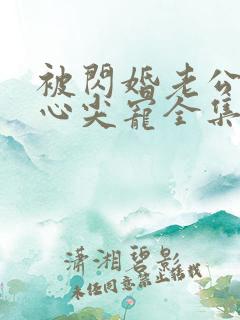 被閃婚老公
心尖寵全集
瀟湘碧影
未经同意禁止转载